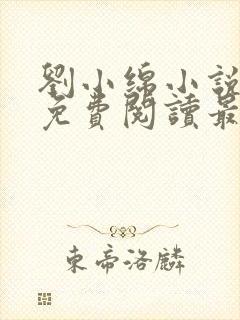 劉小綿小說
免費閱讀最
東帝洛麟